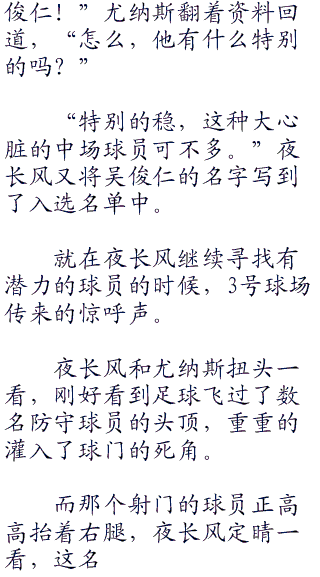 俊仁！”尤纳斯翻着资料回
道，“怎么，他有什么特别
的吗？”
“特别的稳，这种大心
脏的中场球员可不多。”夜
长风又将吴俊仁的名字写到
了入选名单中。
就在夜长风继续寻找有
潜力的球员的时候，3号球场
传来的惊呼声。
夜长风和尤纳斯扭头一
看，刚好看到足球飞过了数
名防守球员的头顶，重重的
灌入了球门的死角。
而那个射门的球员正高
高抬着右腿，夜长风定睛一
看，这名